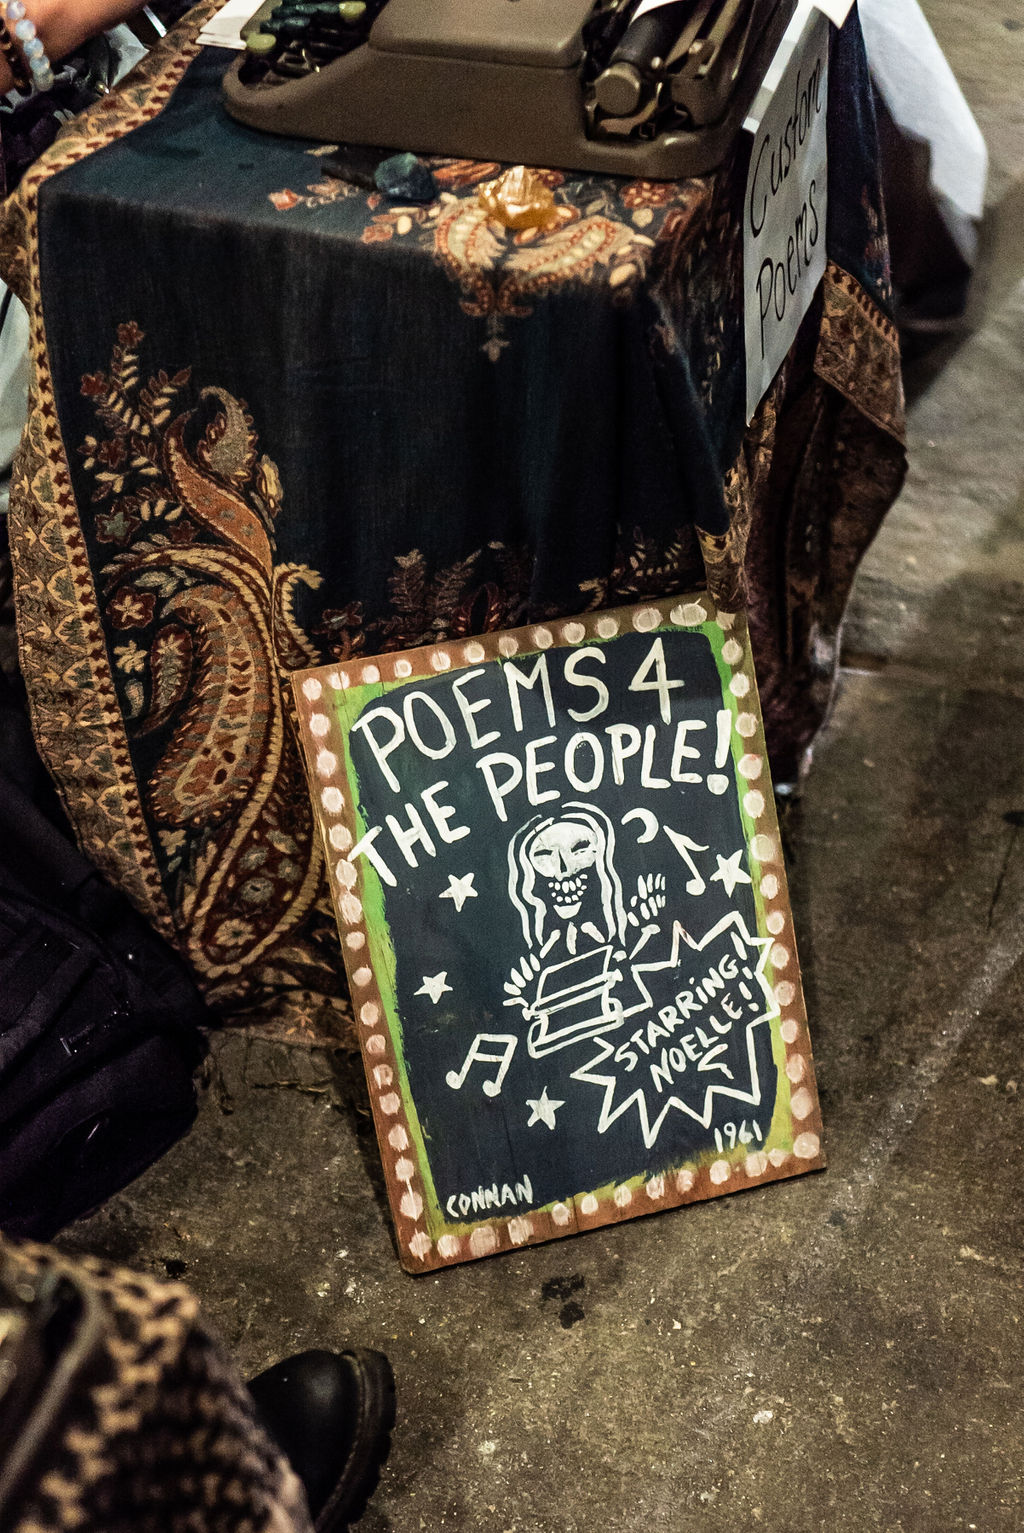 Custom
Poems
POEMS 4
THE PEOPLE!
STARRING!
NOELLE!
1961
CONNAN